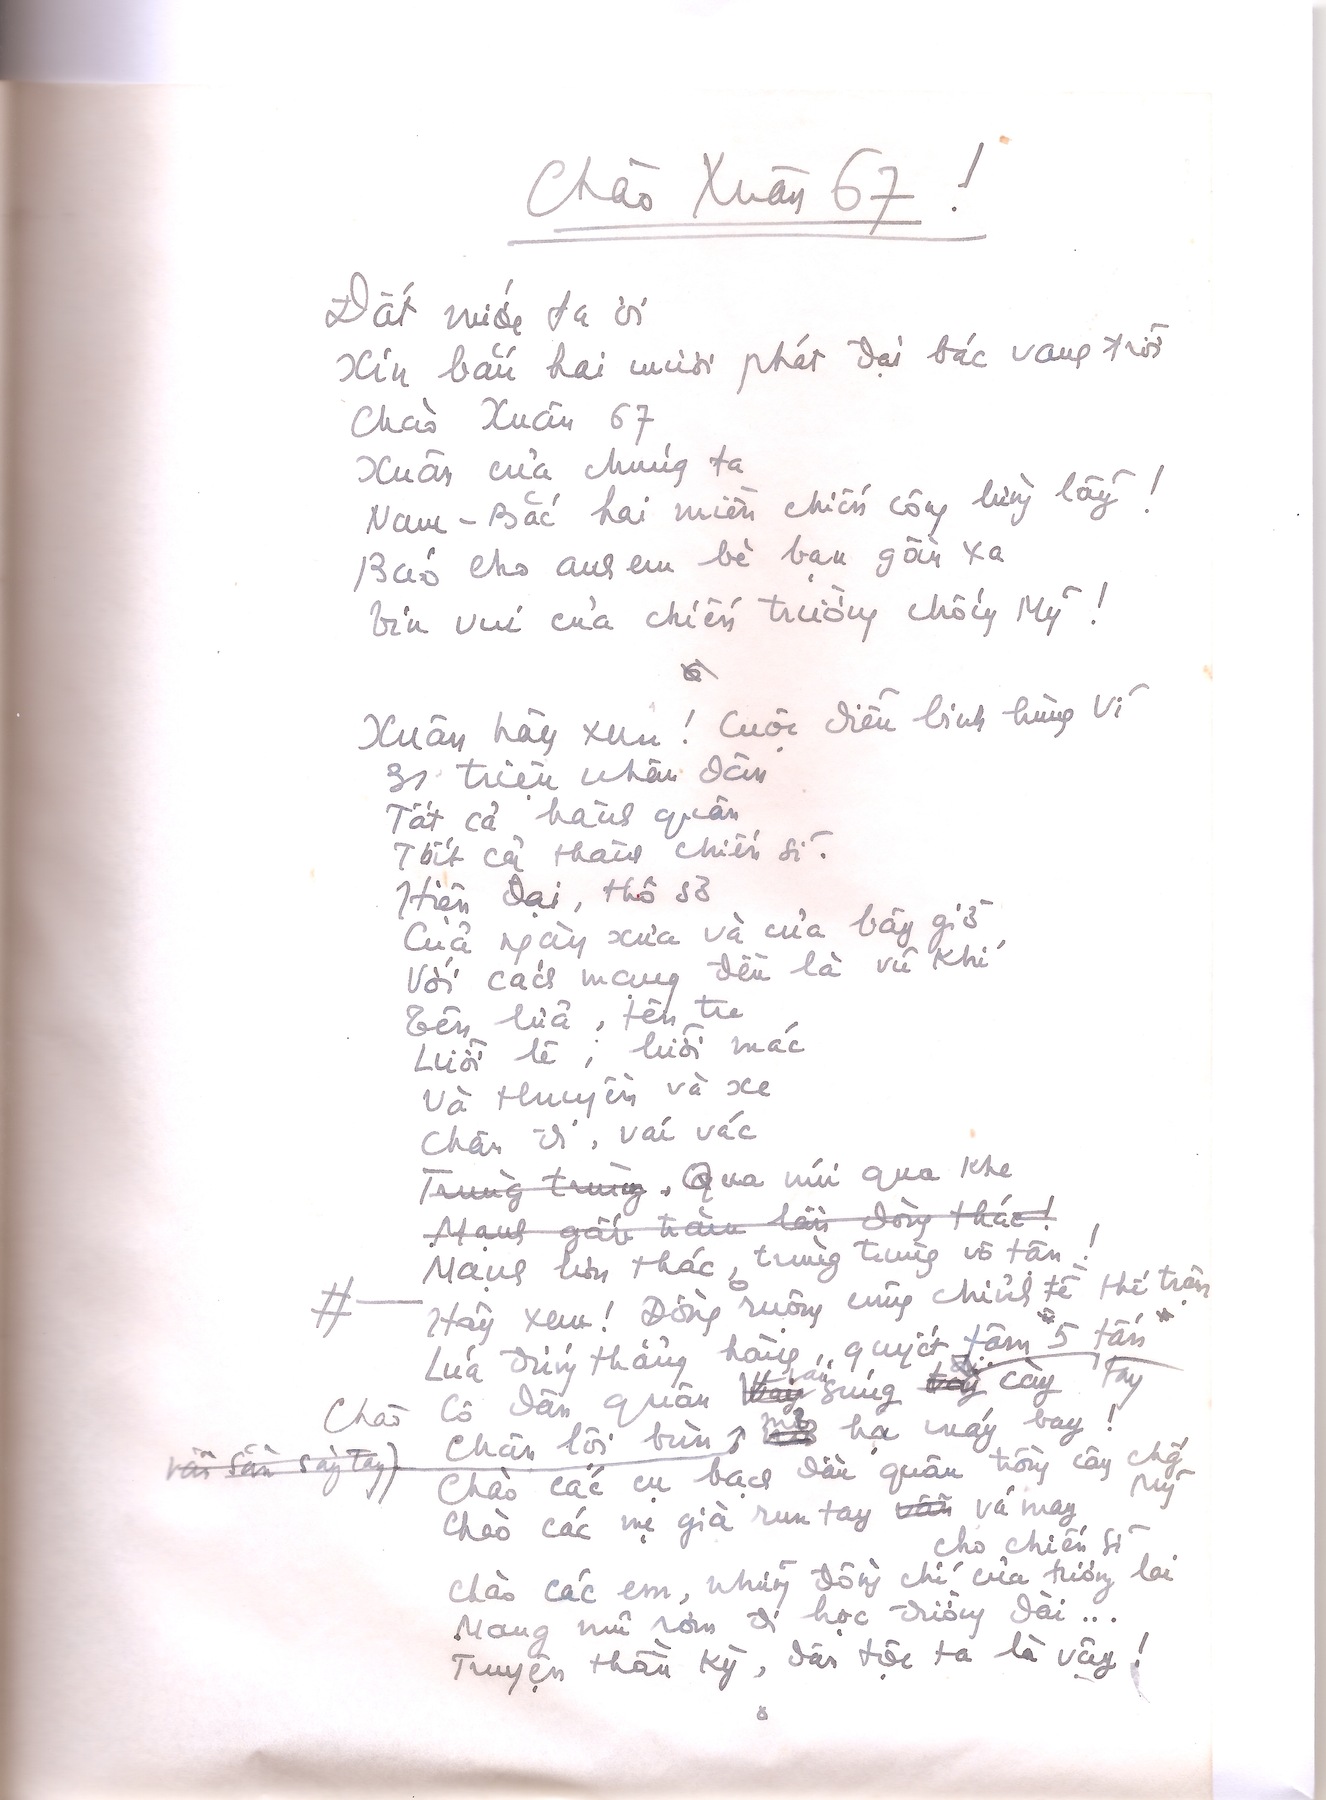 Chào Xuân 67 !
Đất nước ta ơi
Xin bắn hai mươi phát đại bác vang trời
Chào Xuân 67
Xuân của chúng ta
Nam - Bắc hai miền chiến công lừng lẫy !
Báo cho anh em bè bạn gần xa
Tin vui của chiến trường chống Mỹ !
Xuân hãy xem ! Cuộc diễu binh hùng vĩ
31 triệu nhân dân
Tất cả hành quân
Tất cả thành chiến sĩ.
Hiện đại, thô sơ
Của ngày xưa và của bây giờ
Với cách mạng đều là vũ khí
Tên lửa, tên tre
Lưỡi lê, lưỡi mác
Và thuyền và xe
Chân đi, vai vác
Trùng trùng, Qua núi qua khe
Mạnh gấp trăm lần dòng thác !
Mạnh hơn thác, trùng trùng vô tận !
# Hãy xem ! Đồng ruộng cũng chỉnh tề thế trận
Lúa đứng thẳng hàng, quyết tâm "5 tấn"
Chào Cô dân quân vai súng tay cày
Chân lội bùn, mơ hạ máy bay !
vẫn sẵn sàng tay)
Chào các cụ bạch đầu quân trồng cây chống Mỹ
Chào các mẹ già run tay vá may
cho chiến sĩ
Chào các em, những đồng chí của tương lai
Mang mũ rơm đi học đường dài...
Truyện thần kỳ, dân tộc ta là vậy !